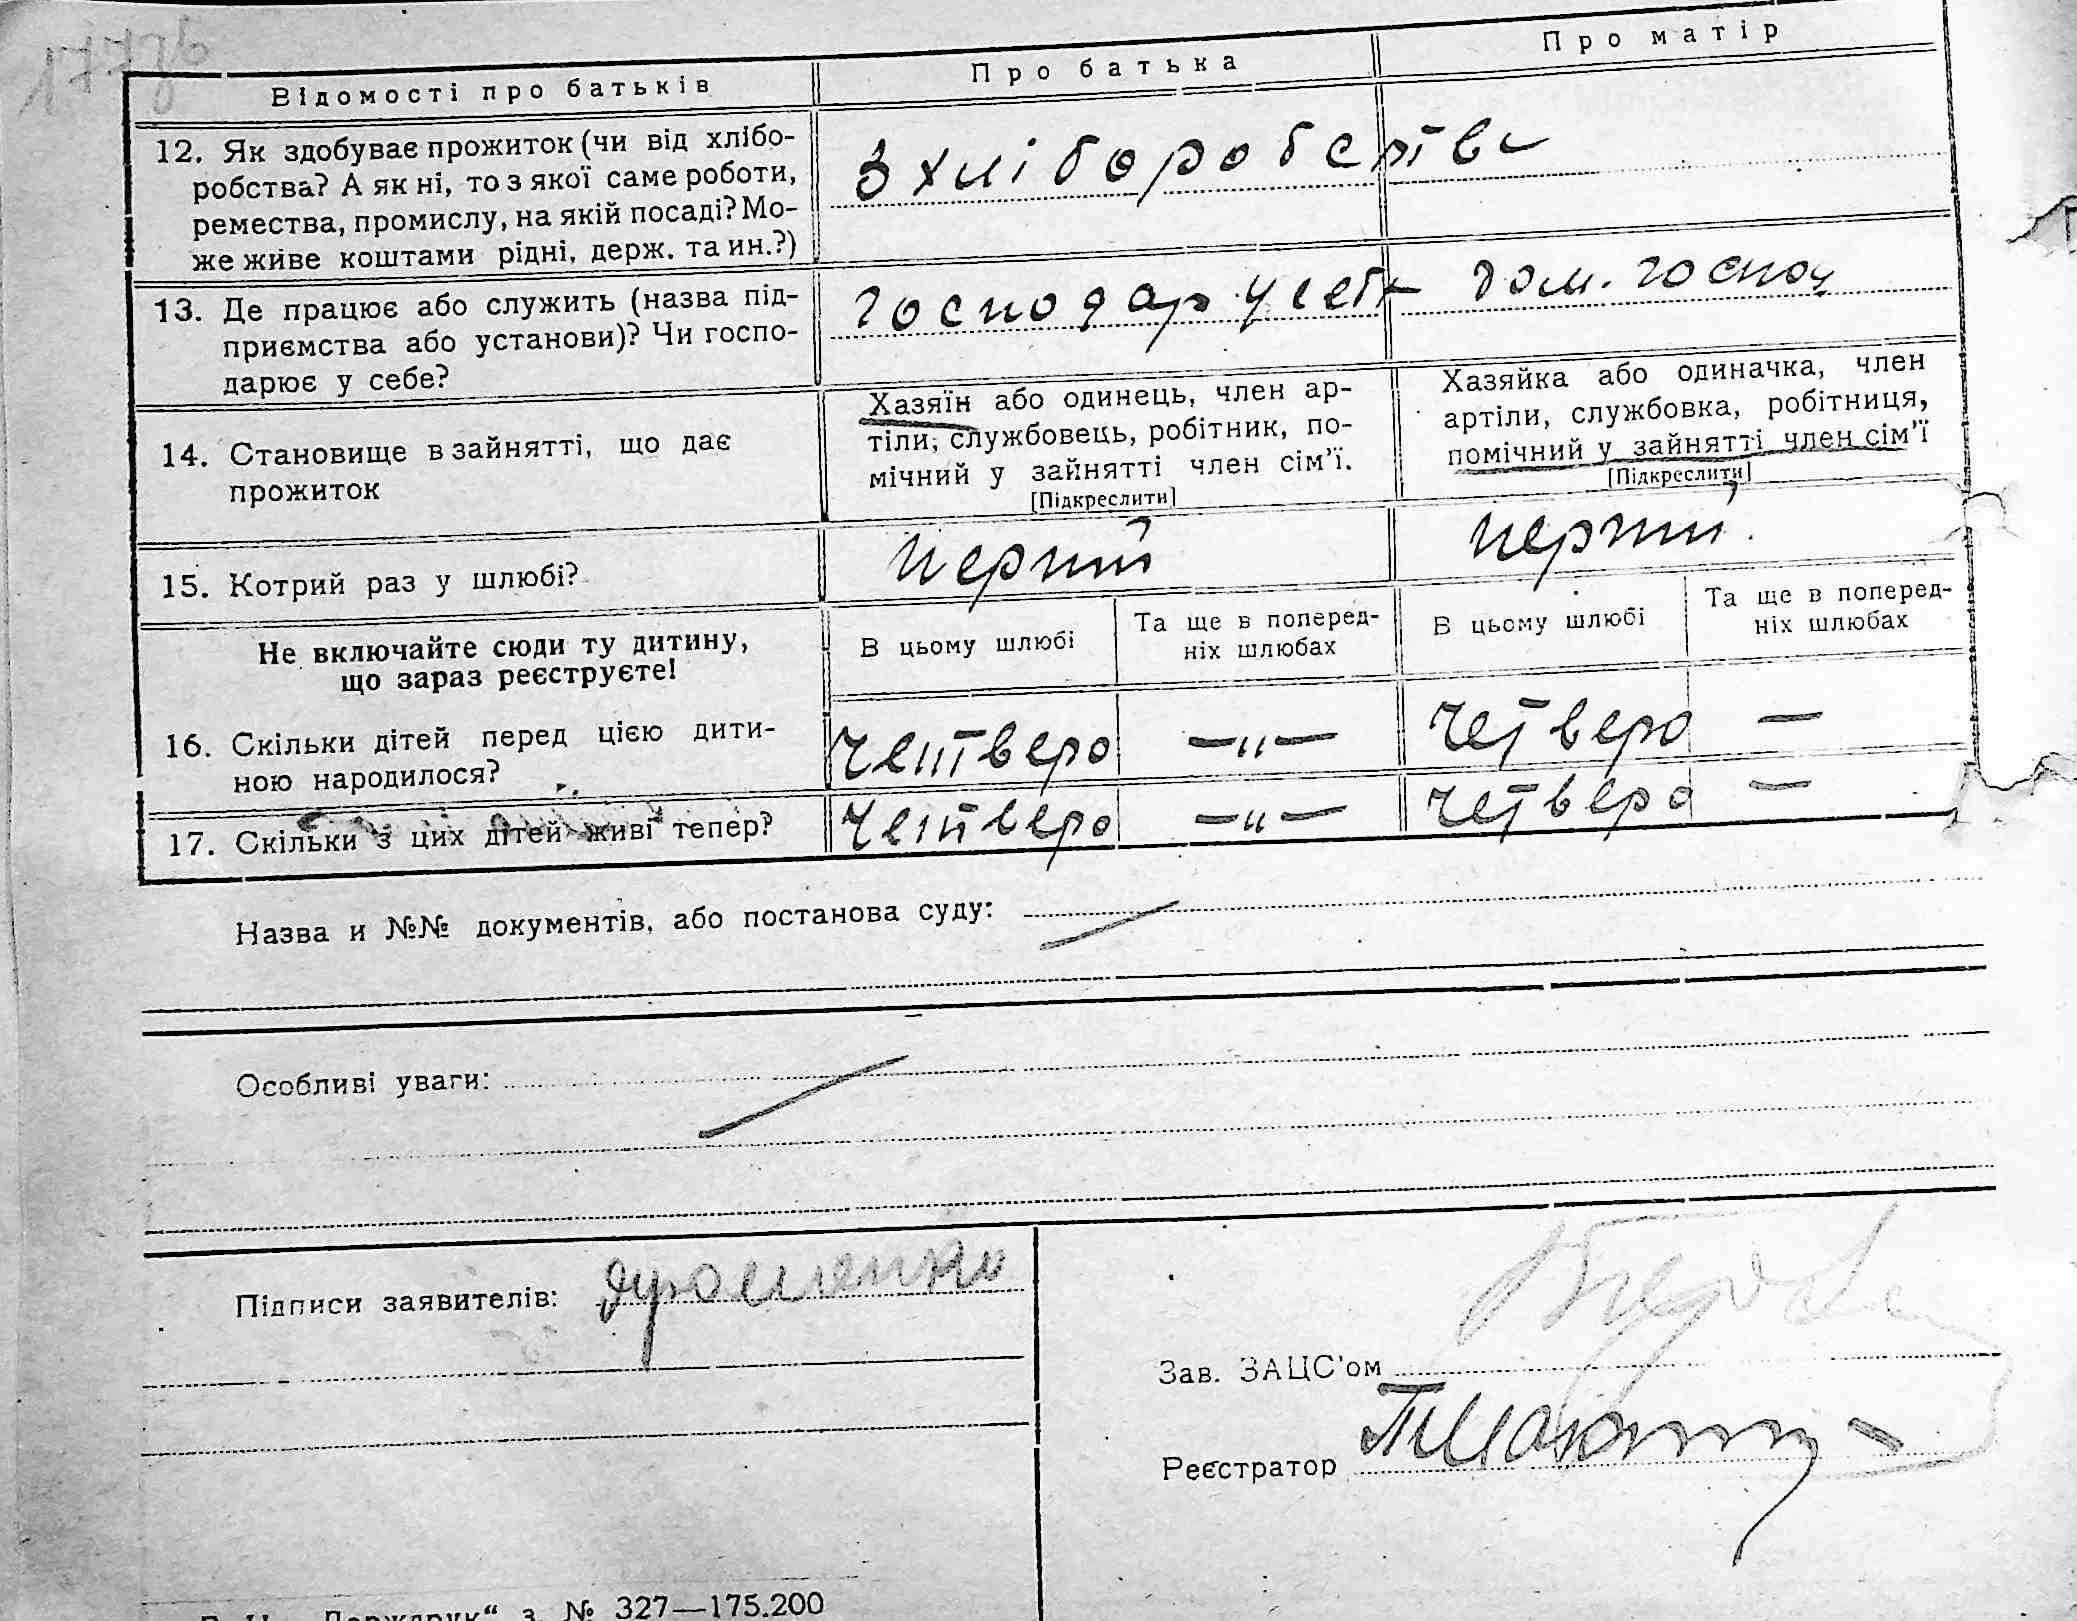 Відомості про батьків Про батька Про матір
12. Як здобуває прожиток (чи від хлібо-
робства? А як ні, то з якої саме роботи,
ремества, промислу, на якій посаді? Мо-
же живе коштами рідні, держ. та ин.?)
З хліборобства
13. Де працює або служить (назва під-
приємства або установи)? Чи госпо-
дарює у себе?
господар у себе дом. господ
14. Становище в зайнятті, що дає
прожиток
Хазяїн або одинець, член ар-
тіли, службовець, робітник, по-
мічний у зайнятті член сім’ї.
[Підкреслити]
Хазяйка або одиначка, член
артіли, службовка, робітниця,
помічний у зайнятті член сім’ї
[Підкреслити]
15. Котрий раз у шлюбі? перший перший
Не включайте сюди ту дитину,
що зараз реєструєте!
В цьому шлюбі
Та ще в поперед-
ніх шлюбах
В цьому шлюбі
Та ще в поперед-
ніх шлюбах
16. Скільки дітей перед цією дити-
ною народилося?
четверо —„— четверо —
17. Скільки з цих дітей живі тепер? четверо —„— четверо —
Назва и №№ документів, або постанова суду:
Особливі уваги:
Підписи заявителів:
Зав. ЗАЦС’ом
Реєстратор
Держдрук“ з. № 327—175.200